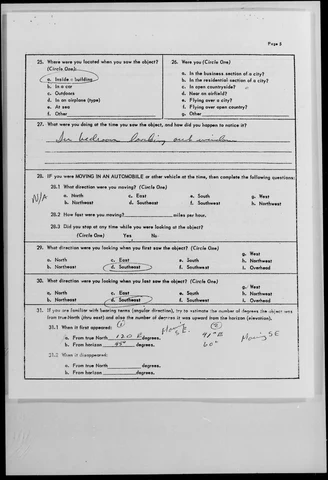 Page 2
25. Where were you located when you saw the object?
(Circle One):
a. Inside a building
b. In a car
c. Outdoors
d. In an airplane (type)
e. At sea
f. Other
26. Were you (Circle One)
a. In the business section of a city?
b. In the residential section of a city?
c. In open countryside?
d. Near an airfield?
e. Flying over a city?
f. Flying over open country?
g. Other
27. What were you doing at the time you saw the object, and how did you happen to notice it?
In bedroom looking out window
28. IF you were MOVING IN AN AUTOMOBILE or other vehicle at the time, then complete the following questions:
N/A
28.1 What direction were you moving? (Circle One)
a. North c. East e. South g. West
b. Northeast d. Southeast f. Southwest h. Northwest
28.2 How fast were you moving? miles per hour.
28.3 Did you stop at any time while you were looking at the object?
(Circle One) Yes No
29. What direction were you looking when you first saw the object? (Circle One)
a. North c. East e. South g. West
b. Northeast d. Southeast f. Southwest h. Northwest
i. Overhead
30. What direction were you looking when you last saw the object? (Circle One)
a. North c. East e. South g. West
b. Northeast d. Southeast f. Southwest h. Northwest
i. Overhead
31. If you are familiar with bearing terms (angular direction), try to estimate the number of degrees the object was
from true North (thru east) and also the number of degrees it was upward from the horizon (elevation).
31.1 When it first appeared:
a. From true North 120 E degrees.
b. From horizon 45° degrees.
Moving S.E.
60°
Moving S E
31.2 When it disappeared:
a. From true North degrees.
b. From horizon degrees.